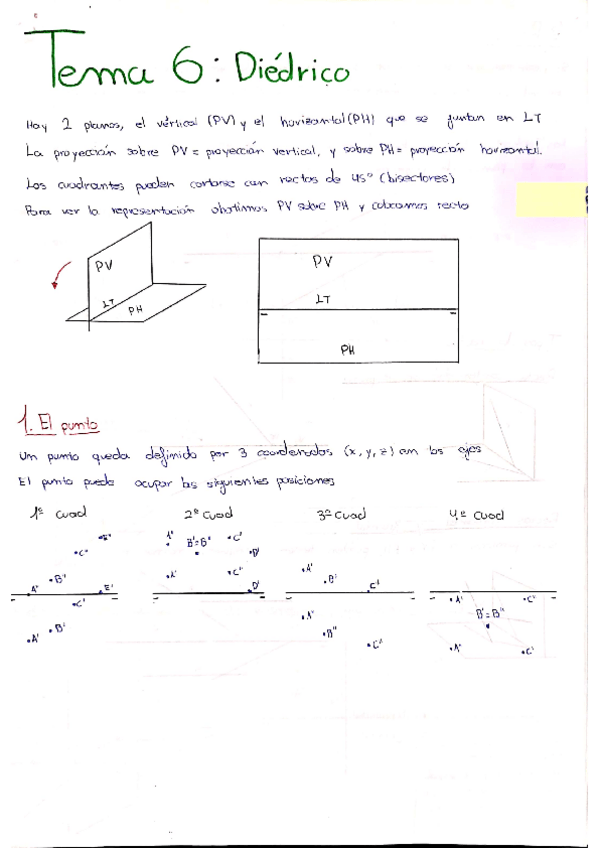 Tema 6: Diédrico
Hay 2 planos, el vértical (PV) y el horizontal (PH) que se juntan en LT
La proyección sobre PV = proyección vertical, y sobre PH = proyección horizontal.
Los cuadrantes pueden cortarse con rectas de 45º (bisectores)
Para ver la representación abatimos PV sobre PH y colocamos recto
PV
LT
PH
PV
LT
PH
1. El punto
Un punto queda definido por 3 coordenadas (x, y, z) con los ejes
El punto puede ocupar las siguientes posiciones
1º cuad
2º cuad
3º cuad
4º cuad
E''
C''
B''
A''
E'
C'
B'
A'
A'
B'=B''
C'
D'
A'
C''
D'
A'
B'
C'
A'
B''
C''
A'
C'
B'=B''
A'
C'